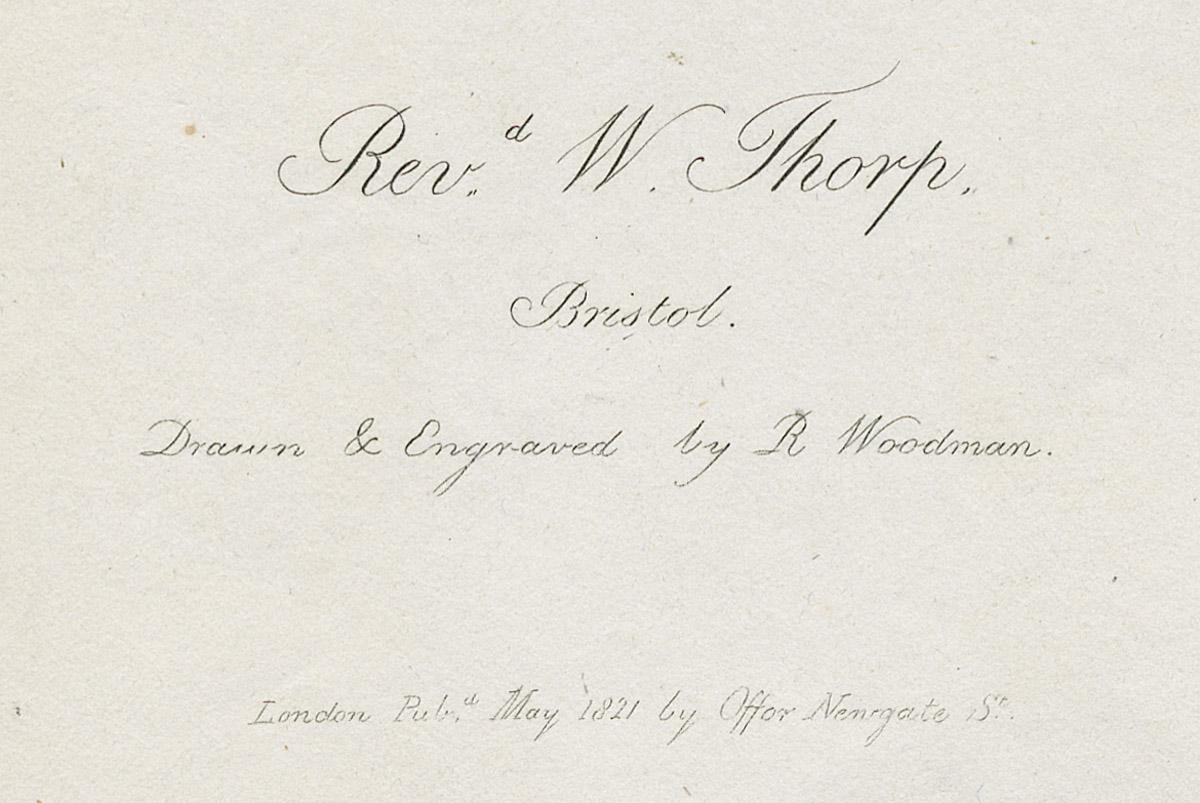 Rev.ᵈ W. Thorp.
Bristol.
Drawn & Engraved by R Woodman.
London Pub.ᵈ May 1821 by Offor Newgate Sᵗ.